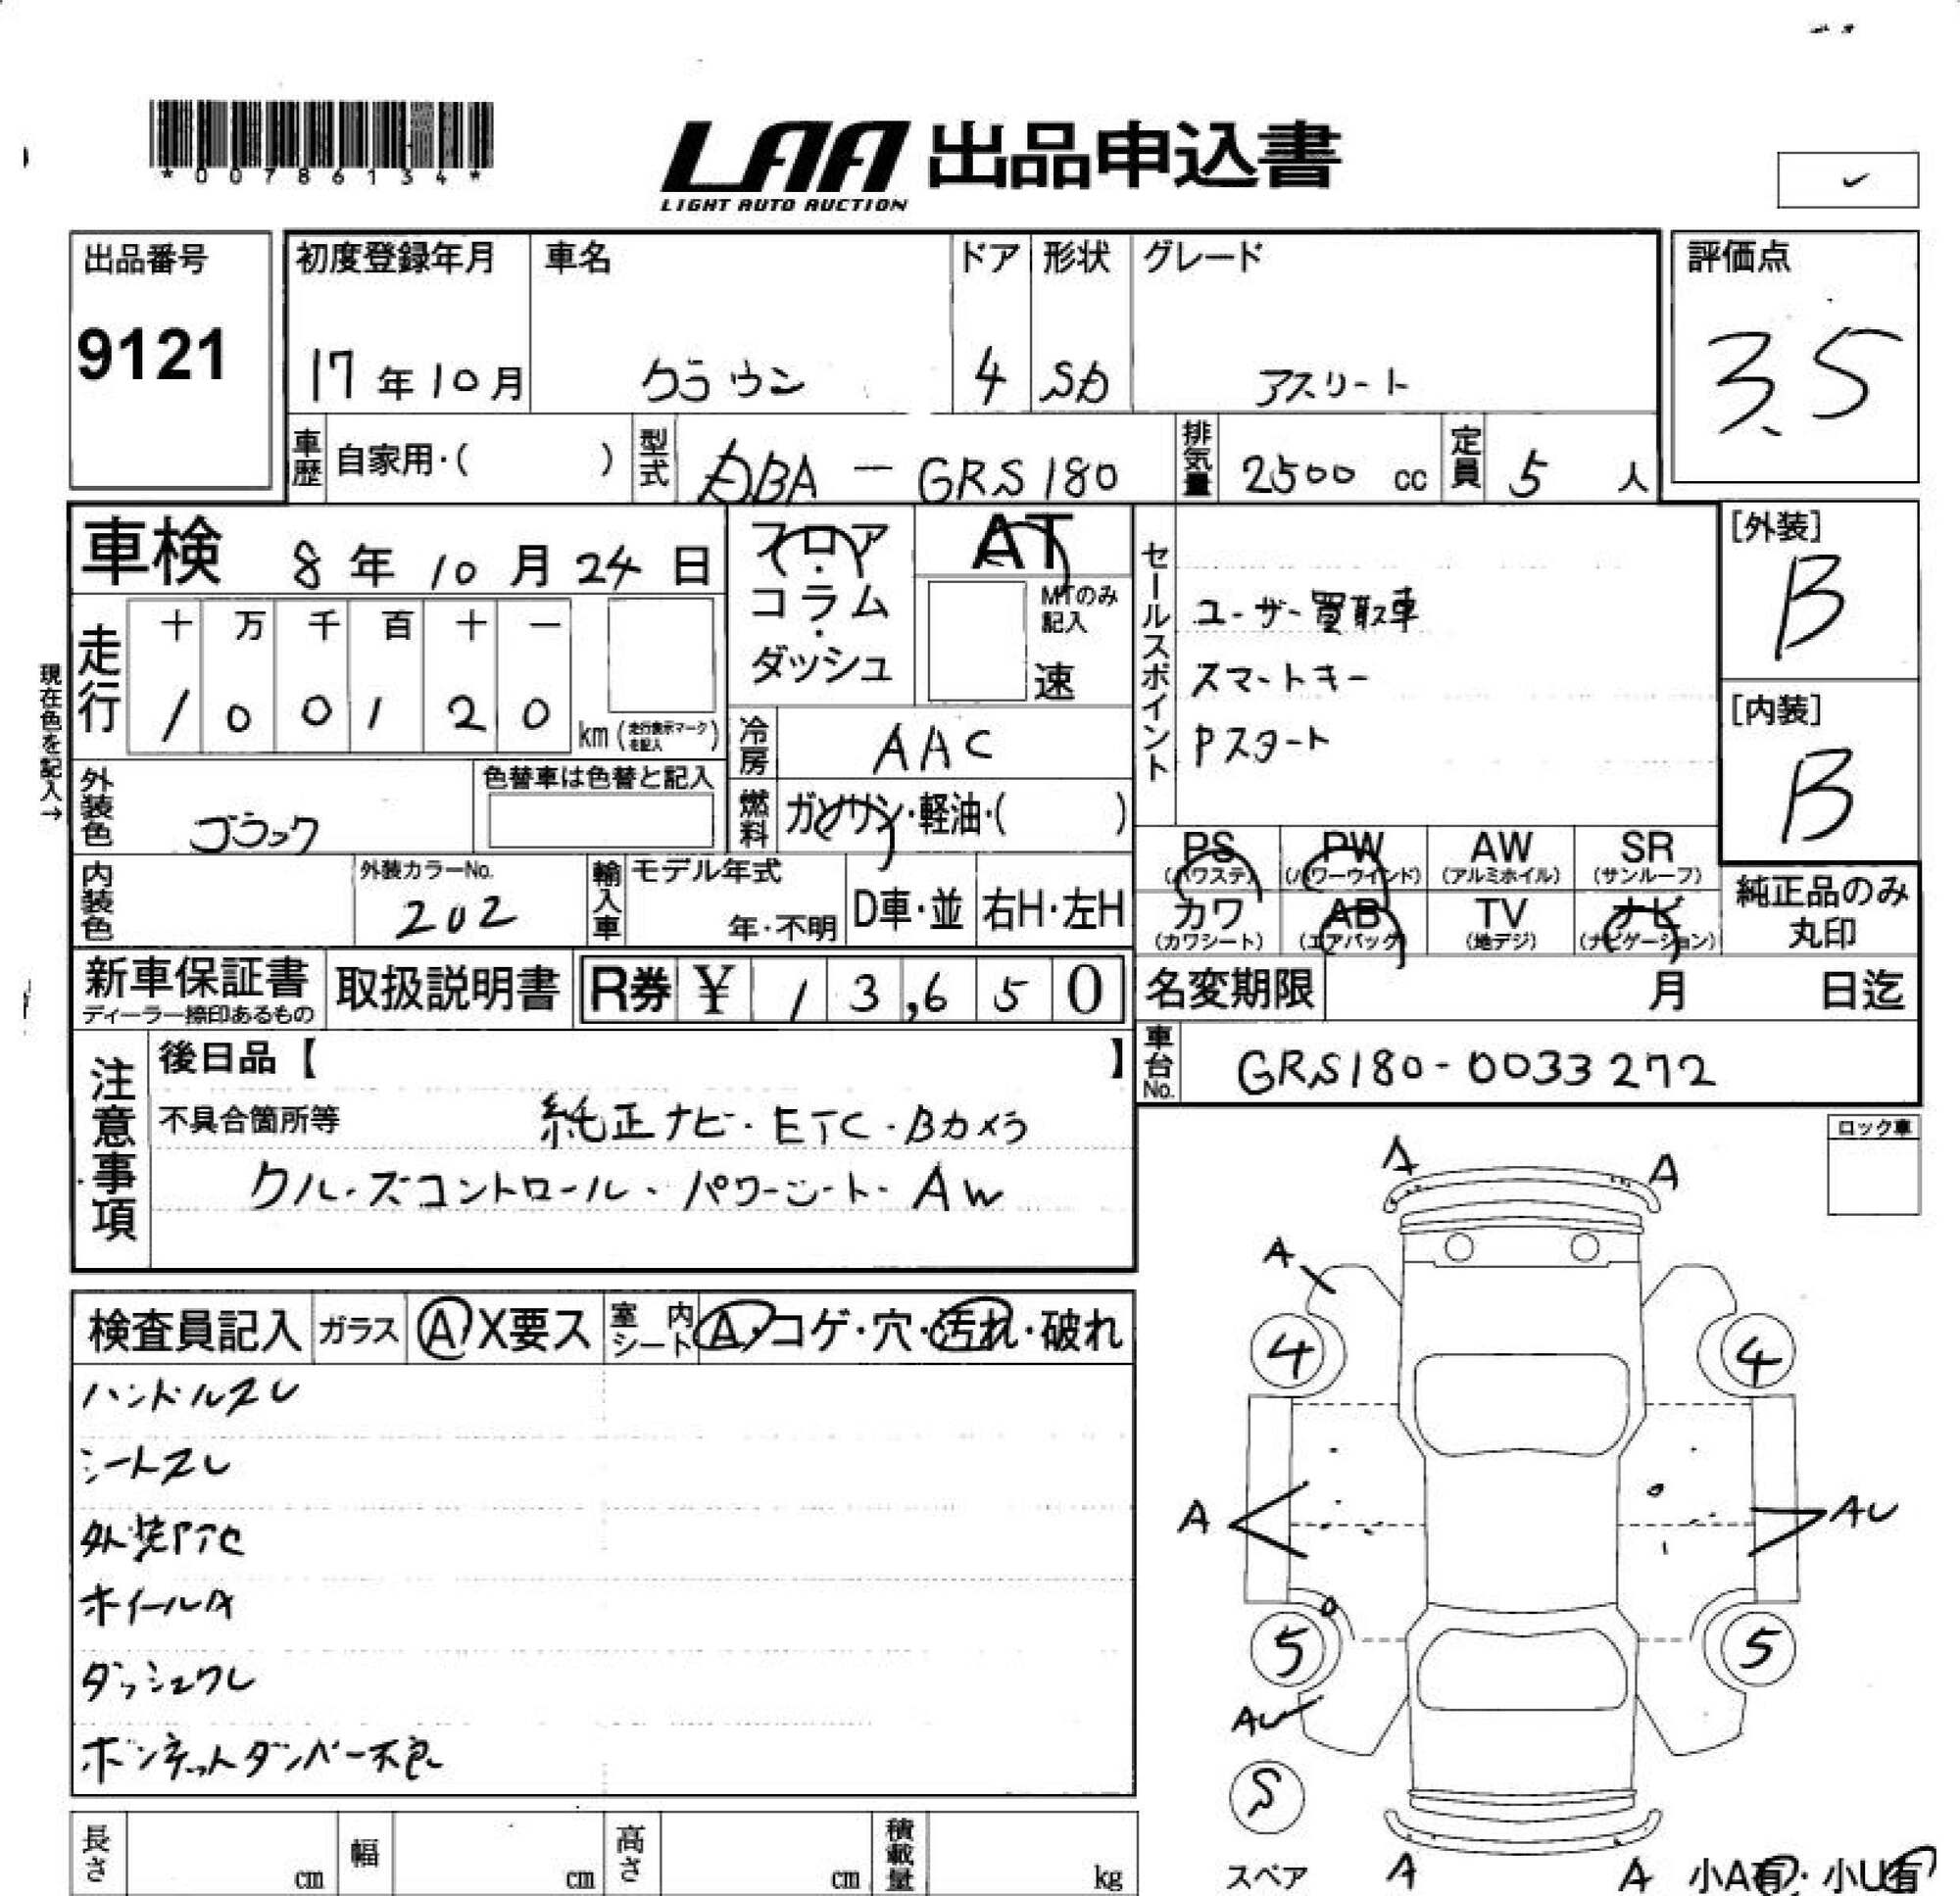 *00786134*
LAA 出品申込書
LIGHT AUTO AUCTION
出品番号
9121
初度登録年月
17年10月
車名
クラウン
ドア
4
形状
SD
グレード
アスリート
評価点
3.5
車歴 自家用・( )
型式 DBA - GRS180
排気量 2500 cc
定員 5 人
車検 8年10月24日
フロア・コラム・ダッシュ
AT
MTのみ記入
速
セールスポイント
ユーザー買取車
スマートキー
Pスタート
[外装]
B
[内装]
B
現在色を記入→
走行
十 万 千 百 十 一
1 0 0 1 2 0 km (走行表示マークを記入)
冷房 AAC
外装色 ブラック
色替車は色替と記入
燃料 ガソリン・軽油・( )
PS (パワステ) PW (パワーウインド) AW (アルミホイル) SR (サンルーフ)
カワ (カワシート) AB (エアバッグ) TV (地デジ) ナビ (ナビゲーション)
純正品のみ丸印
内装色
外装カラーNo.
202
輸入車 モデル年式
年・不明
D車・並 右H・左H
新車保証書
ディーラー捺印あるもの
取扱説明書
R券 ¥ 13,650
名変期限 月 日迄
車台No. GRS180-0033272
注意事項
後日品【 】
不具合箇所等
純正ナビ・ETC・Bカメラ
クルーズコントロール・パワーシート・AW
ロック車
検査員記入 ガラス A X要ス 室内シート A・コゲ・穴・汚れ・破れ
ハンドルスレ
シートスレ
ホイールA
ボンネットダンパー不良
A A
A
4 4
A AU
5 5
AU
S
スペア
A A
小A有・小U有
長さ cm 幅 cm 高さ cm 積載量 kg